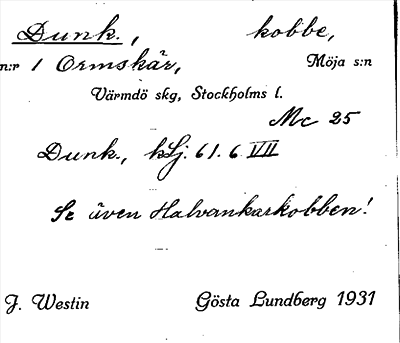 Dunk., kobbe,
n:r 1 Ormskär, Möja s:n
Värmdö skg, Stockholms l.
Mc 25
Dunk., kLj. 61. 6 VII
Se även Halvankarkobben!
J. Westin Gösta Lundberg 1931